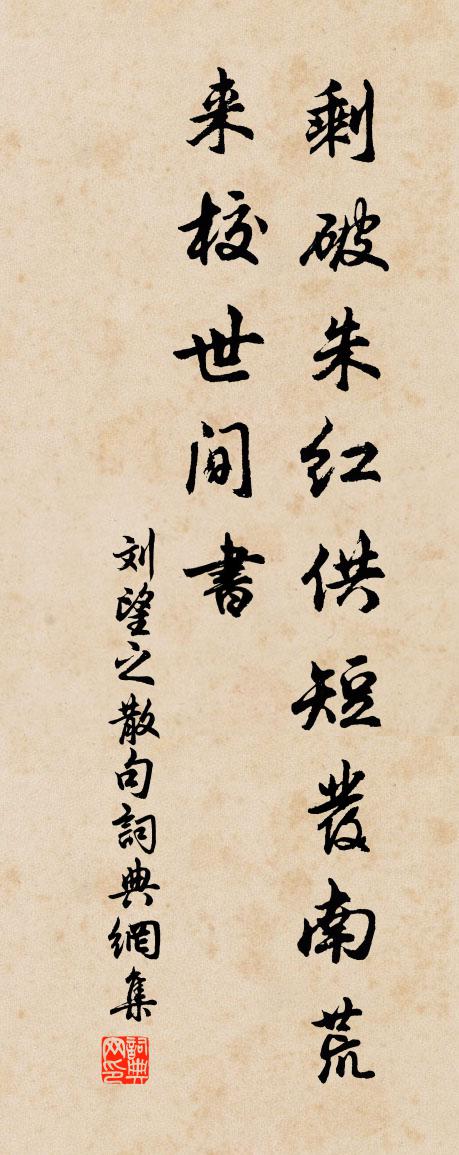 剩破朱红供短发南荒
来校世间書
刘望之散句詞典網集
詞典网印